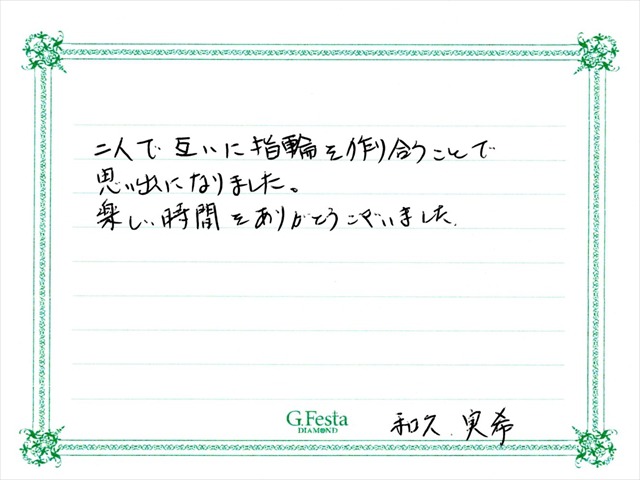 二人で互いに指輪を作り合うことで
思い出になりました。
楽しい時間をありがとうございました.
G.Festa
DIAMOND
和久.実希